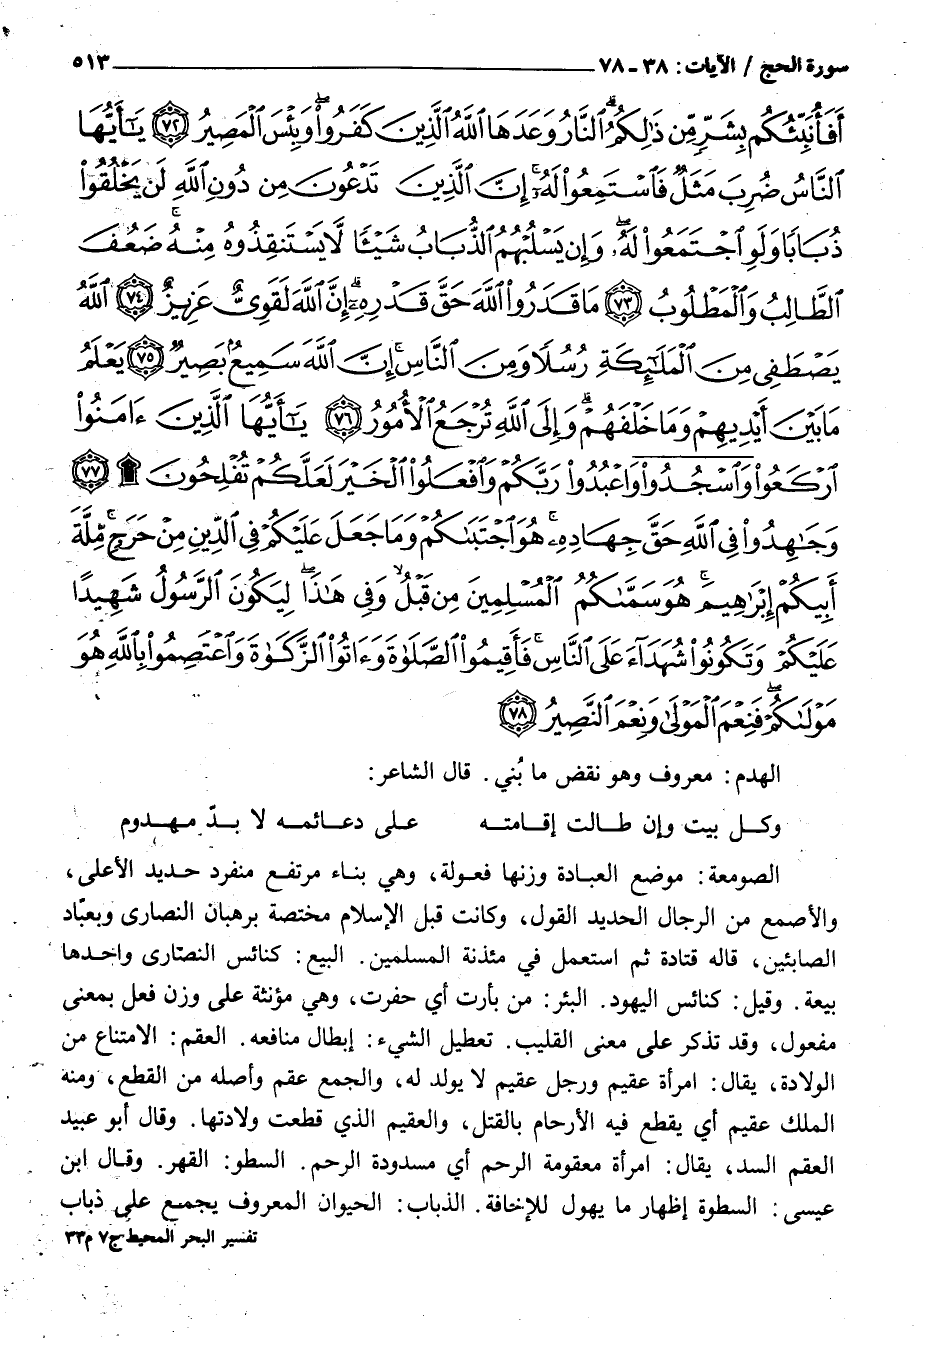 سورة الحج / الآيات: ٣٨ - ٧٨ ٥١٣
أَفَأُنَبِّئُكُم بِشَرٍّ مِّن ذَٰلِكُمُ ۗ ٱلنَّارُ وَعَدَهَا ٱللَّهُ ٱلَّذِينَ كَفَرُوا۟ ۖ وَبِئْسَ ٱلْمَصِيرُ ﴿٧٢﴾ يَـٰٓأَيُّهَا
ٱلنَّاسُ ضُرِبَ مَثَلٌ فَٱسْتَمِعُوا۟ لَهُۥٓ ۚ إِنَّ ٱلَّذِينَ تَدْعُونَ مِن دُونِ ٱللَّهِ لَن يَخْلُقُوا۟
ذُبَابًا وَلَوِ ٱجْتَمَعُوا۟ لَهُۥ ۖ وَإِن يَسْلُبْهُمُ ٱلذُّبَابُ شَيْـًٔا لَّا يَسْتَنقِذُوهُ مِنْهُ ۚ ضَعُفَ
ٱلطَّالِبُ وَٱلْمَطْلُوبُ ﴿٧٣﴾ مَا قَدَرُوا۟ ٱللَّهَ حَقَّ قَدْرِهِۦٓ ۗ إِنَّ ٱللَّهَ لَقَوِىٌّ عَزِيزٌ ﴿٧٤﴾ ٱللَّهُ
يَصْطَفِى مِنَ ٱلْمَلَـٰٓئِكَةِ رُسُلًا وَمِنَ ٱلنَّاسِ ۚ إِنَّ ٱللَّهَ سَمِيعٌۢ بَصِيرٌ ﴿٧٥﴾ يَعْلَمُ
مَا بَيْنَ أَيْدِيهِمْ وَمَا خَلْفَهُمْ ۗ وَإِلَى ٱللَّهِ تُرْجَعُ ٱلْأُمُورُ ﴿٧٦﴾ يَـٰٓأَيُّهَا ٱلَّذِينَ ءَامَنُوا۟
ٱرْكَعُوا۟ وَٱسْجُدُوا۟ وَٱعْبُدُوا۟ رَبَّكُمْ وَٱفْعَلُوا۟ ٱلْخَيْرَ لَعَلَّكُمْ تُفْلِحُونَ ۩ ﴿٧٧﴾
وَجَـٰهِدُوا۟ فِى ٱللَّهِ حَقَّ جِهَادِهِۦ ۚ هُوَ ٱجْتَبَىٰكُمْ وَمَا جَعَلَ عَلَيْكُمْ فِى ٱلدِّينِ مِنْ حَرَجٍ ۚ مِّلَّةَ
أَبِيكُمْ إِبْرَٰهِيمَ ۚ هُوَ سَمَّىٰكُمُ ٱلْمُسْلِمِينَ مِن قَبْلُ وَفِى هَـٰذَا لِيَكُونَ ٱلرَّسُولُ شَهِيدًا
عَلَيْكُمْ وَتَكُونُوا۟ شُهَدَآءَ عَلَى ٱلنَّاسِ ۚ فَأَقِيمُوا۟ ٱلصَّلَوٰةَ وَءَاتُوا۟ ٱلزَّكَوٰةَ وَٱعْتَصِمُوا۟ بِٱللَّهِ هُوَ
مَوْلَىٰكُمْ ۖ فَنِعْمَ ٱلْمَوْلَىٰ وَنِعْمَ ٱلنَّصِيرُ ﴿٧٨﴾
الهدم: معروف وهو نقض ما بُني. قال الشاعر:
وكل بيت وإن طالت إقامته على دعائمه لا بدّ مهدوم
الصومعة: موضع العبادة وزنها فعولة، وهي بناء مرتفع منفرد حديد الأعلى،
والأصمع من الرجال الحديد القول، وكانت قبل الإسلام مختصة برهبان النصارى وبعبّاد
الصابئين، قاله قتادة ثم استعمل في مئذنة المسلمين. البيع: كنائس النصارى واحدها
بيعة. وقيل: كنائس اليهود. البئر: من بأرت أي حفرت، وهي مؤنثة على وزن فعل بمعنى
مفعول، وقد تذكر على معنى القليب. تعطيل الشيء: إبطال منافعه. العقم: الامتناع من
الولادة، يقال: امرأة عقيم ورجل عقيم لا يولد له، والجمع عقم وأصله من القطع، ومنه
الملك عقيم أي يقطع فيه الأرحام بالقتل، والعقيم الذي قطعت ولادتها. وقال أبو عبيد
العقم السد، يقال: امرأة معقومة الرحم أي مسدودة الرحم. السطو: القهر. وقال ابن
عيسى: السطوة إظهار ما يهول للإخافة. الذباب: الحيوان المعروف يجمع على ذباب
تفسير البحر المحيط ج٧ م٣٣